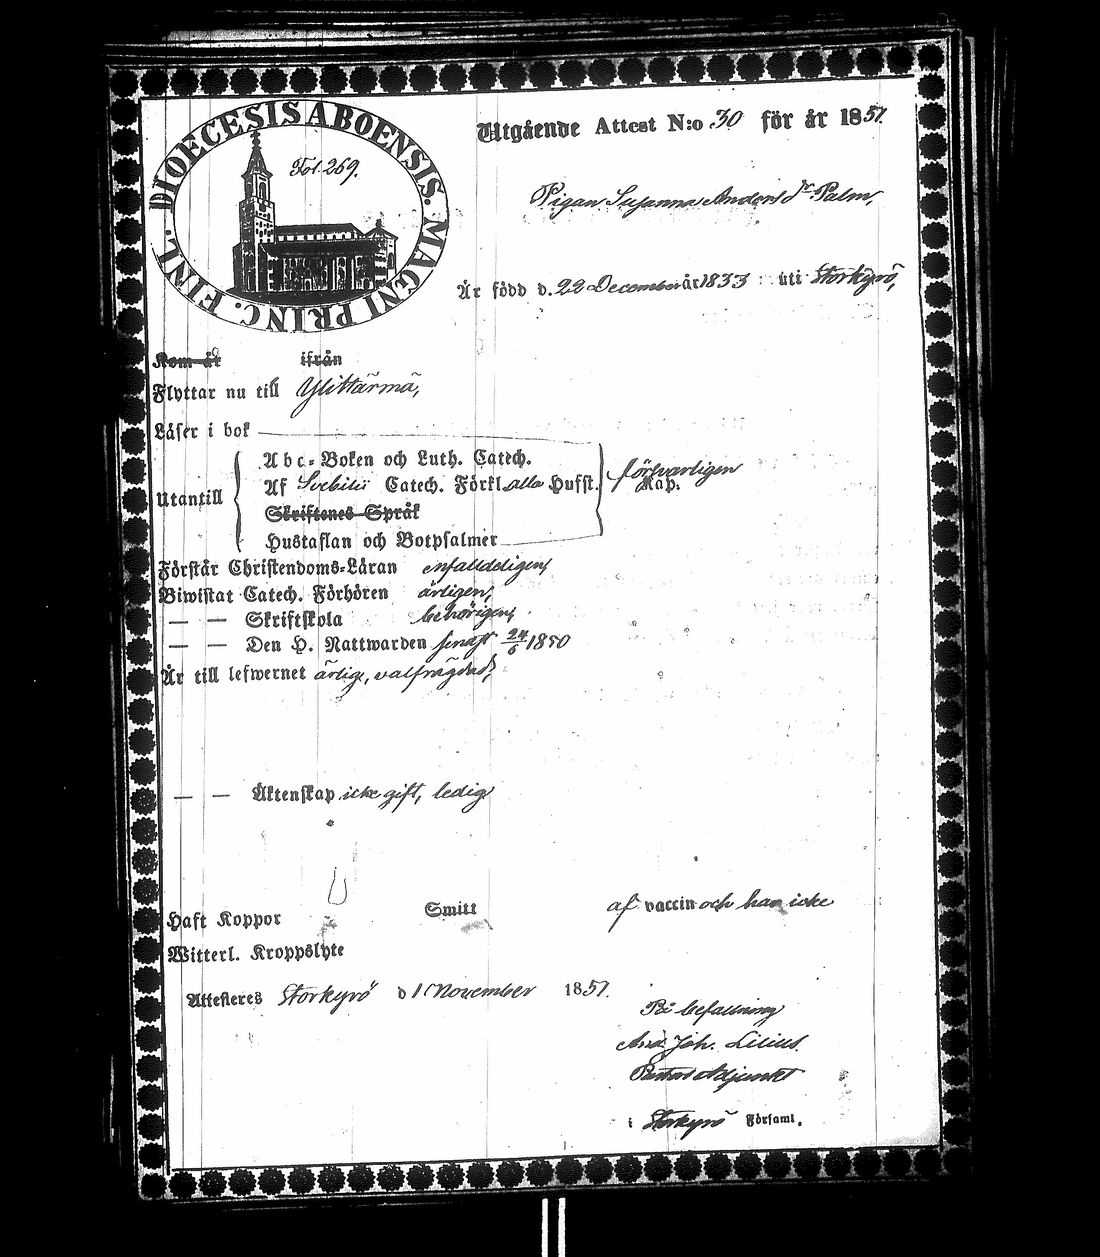 DIOECESIS ABOENSIS. MAGNI PRINC. FINL.
Fol. 269.
Utgående Attest N:o 30 för år 1851.
Pigan Susanna Anders dr Palm,
Är född d. 22 December år 1833 uti Storkyro,
Kom år ifrån
Flyttar nu till Ylihärmä,
Läser i bok
Abc-Boken och Luth. Catech.
Utantill
Af Svebilii Catech. Förkl. alla Hufst. försvarligen
Kap.
Skriftenes Språk
Hustaflan och Botpsalmer
Förstår Christendoms-Läran enfalldeligen,
Biwistat Catech. Förhören årligen,
— — Skriftskola behörigen,
— — Den H. Nattwarden senast 24/6 1850
Är till lefwernet ärlig, välfrägdad,
— — Äktenskap icke gift, ledig
Haft Koppor Smitt af vaccin och har icke
Witterl. Kroppslyte
Attesteres Storkyrö d 1 November 1851.
På befallning
And. Joh. Lilius.
Pastors Adjunkt
i Storkyro Församl.